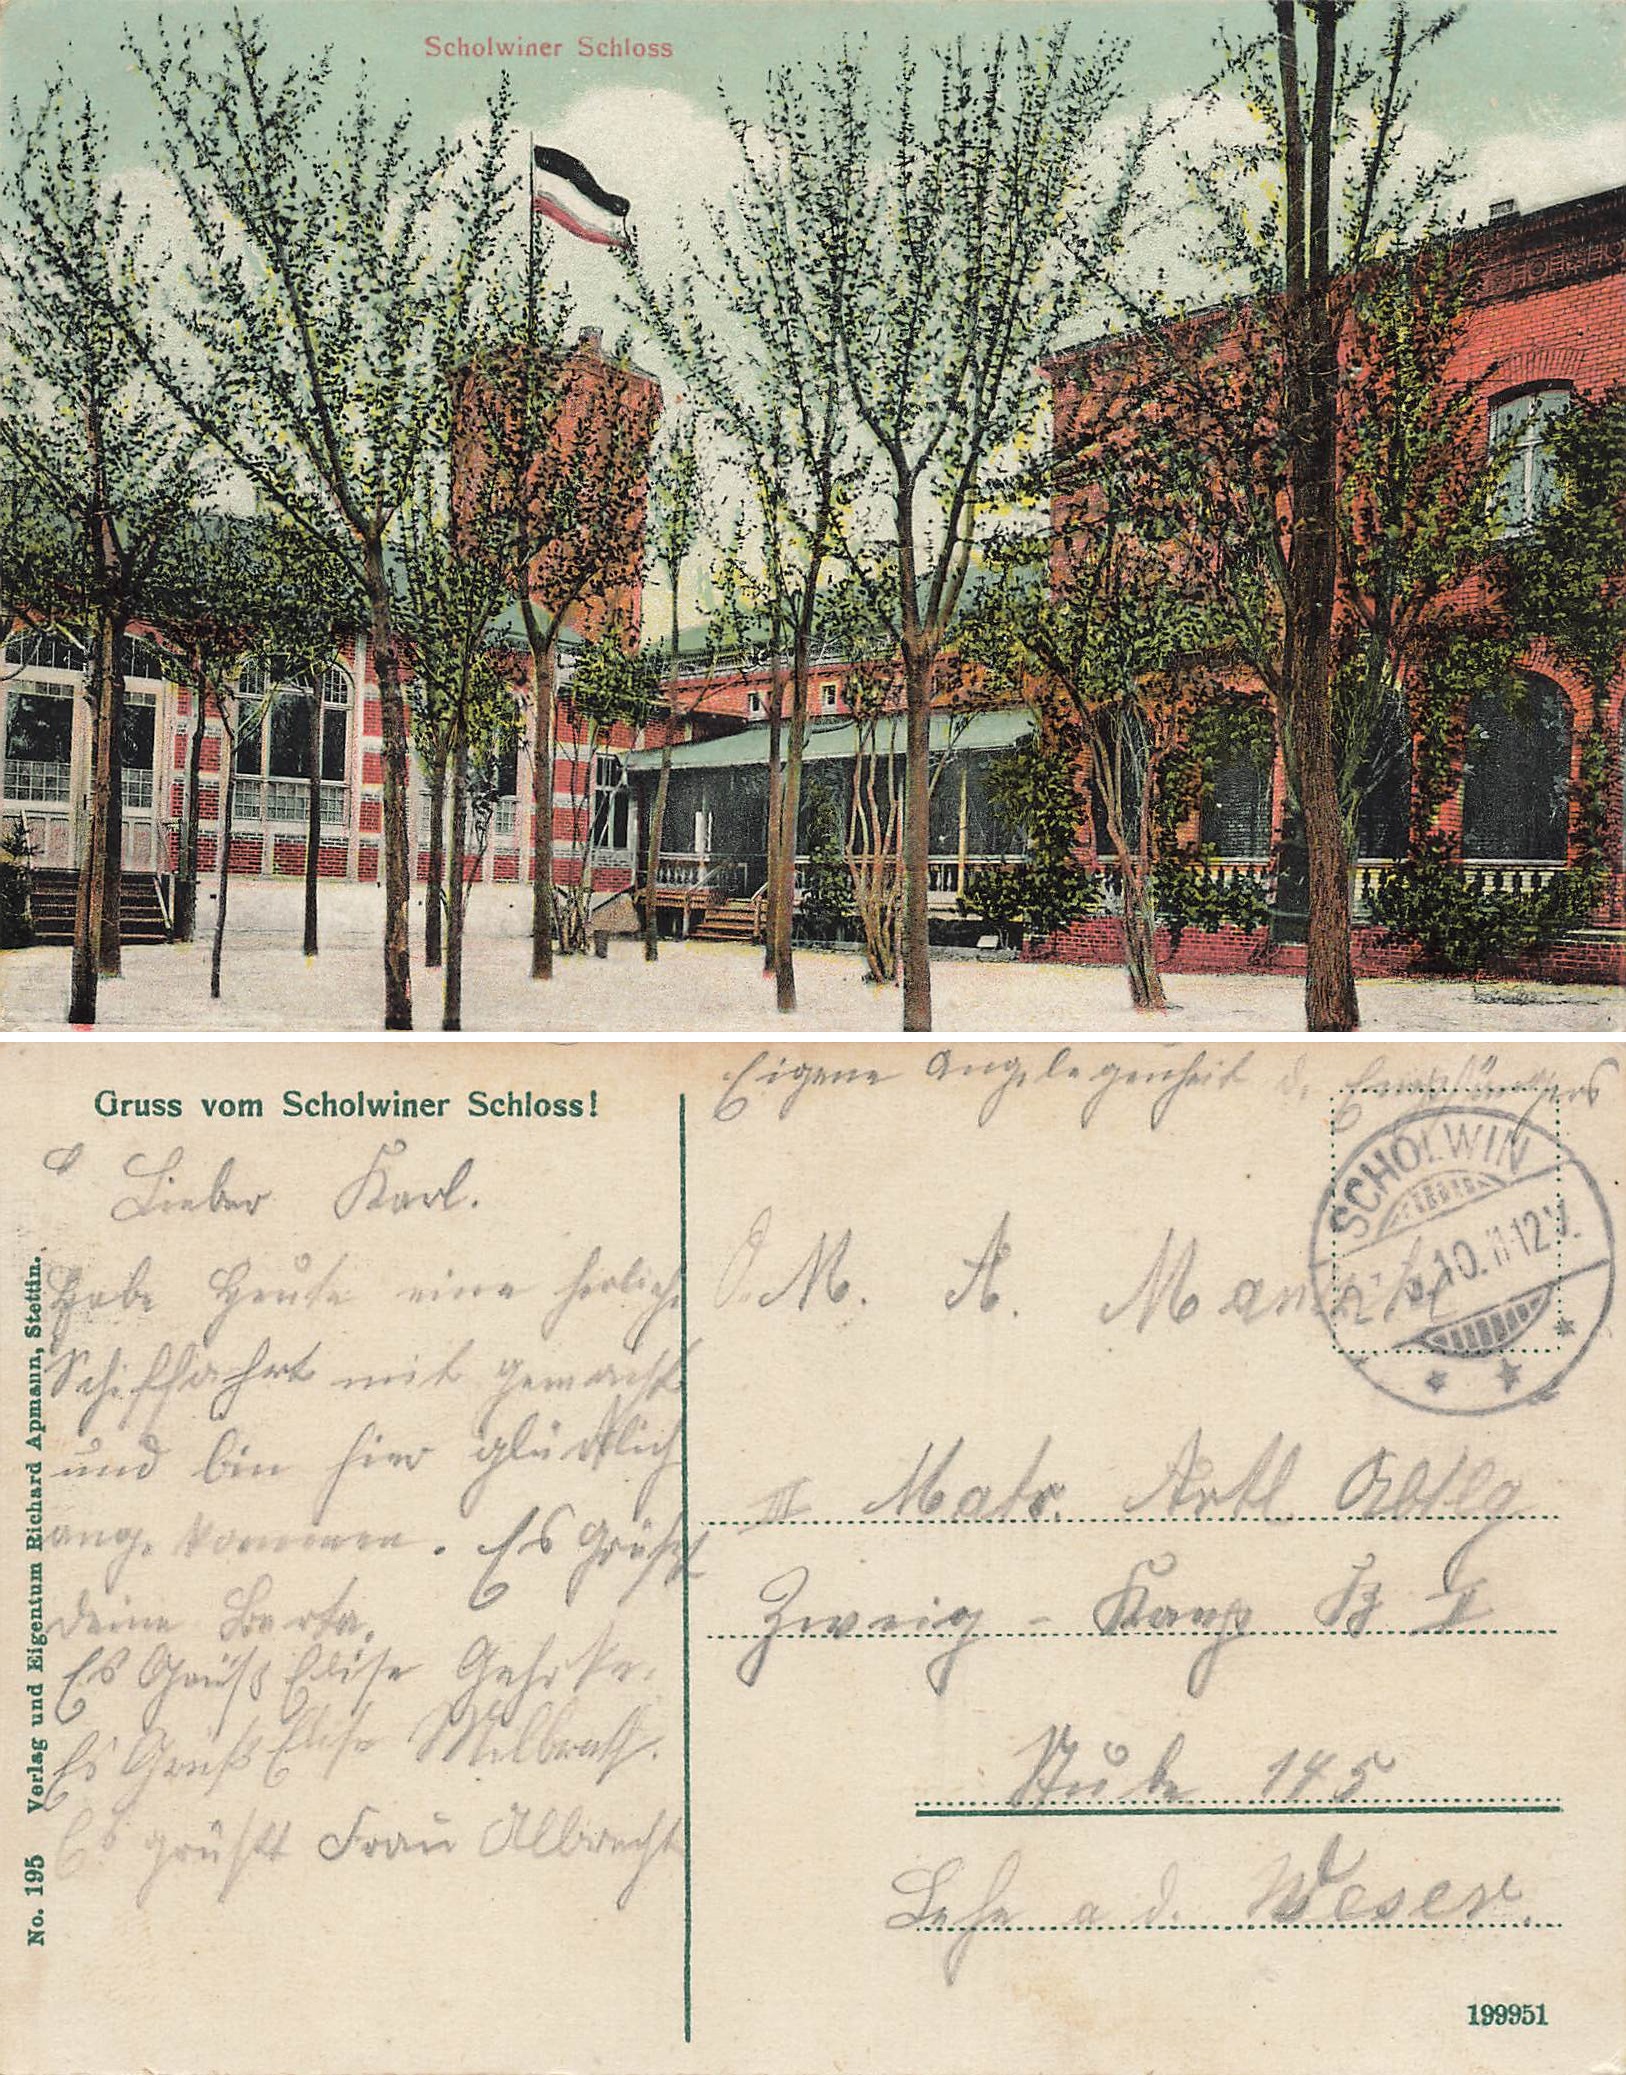 Scholwiner Schloss
Gruss vom Scholwiner Schloss!
Lieber Karl.
Habe Heute eine herliche
Schiffahrt mit gemacht
und bin hier glücklich
ange kommen. Es Grüßt
deine Berta.
Es Grüßt Elise Gehrke.
Es Grüßt Elise Milbratt.
Es grüßtt Frau Albrecht
No. 195 Verlag und Eigentum Richard Apmann, Stettin.
Eigene Angelegenheit d. Empfängers
SCHOLWIN
10. 11-12V.
M. A.
III Matr. Artl. Abtlg
Zweig - Kamp B II
Stube 145
Lehe a d. Weser.
199951